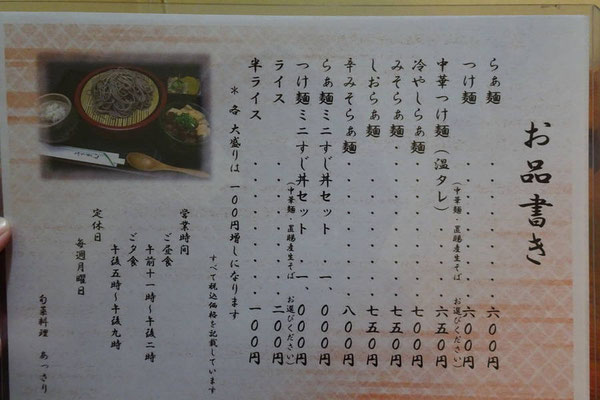 お品書き
らぁ麺・・・・・・・・六〇〇円
つけ麺・・・・・・・・六〇〇円
(中華麺・置賜産生そば お選びください)
中華つけ麺(温タレ)・・・・六五〇円
冷やしらぁ麺・・・・・七〇〇円
みそらぁ麺・・・・・・七五〇円
しおらぁ麺・・・・・・七五〇円
辛みそらぁ麺・・・・・八〇〇円
らぁ麺ミニすじ丼セット・一、〇〇〇円
つけ麺ミニすじ丼セット・一、〇〇〇円
(中華麺・置賜産生そば お選びください)
ライス・・・・・・・・二〇〇円
半ライス・・・・・・・一〇〇円
* 各 大盛りは 一〇〇円増しになります
すべて税込価格を記載しています
営業時間
ご昼食
午前十一時〜午後二時
ご夕食
午後五時〜午後九時
定休日
毎週月曜日
旬菜料理 あっさり